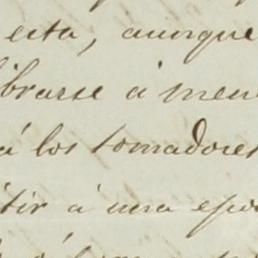 esta, aunque
librarse á men
á los tomadores
itir á una epo